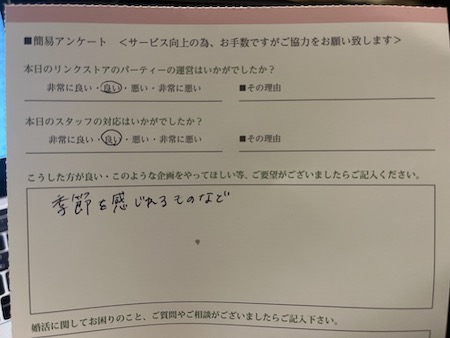 ■簡易アンケート ＜サービス向上の為、お手数ですがご協力をお願い致します＞
本日のリンクストアのパーティーの運営はいかがでしたか？
非常に良い・良い・悪い・非常に悪い ■その理由
本日のスタッフの対応はいかがでしたか？
非常に良い・良い・悪い・非常に悪い ■その理由
こうした方が良い・このような企画をやってほしい等、ご要望がございましたらご記入ください。
季節を感じれるものなど
婚活に関してお困りのこと、ご質問やご相談がございましたらご記入下さい。